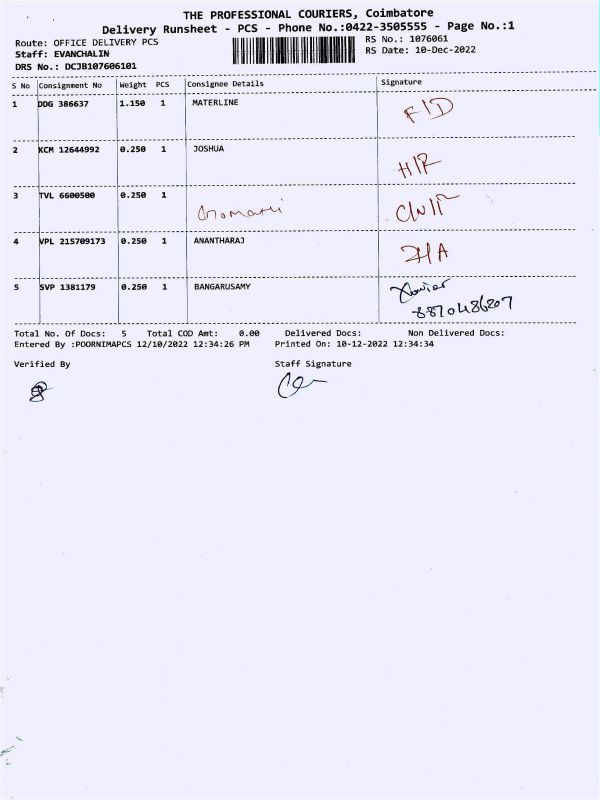 THE PROFESSIONAL COURIERS, Coimbatore
Delivery Runsheet - PCS - Phone No.:0422-3505555 - Page No.:1
Route: OFFICE DELIVERY PCS
RS No.: 1076061
Staff: EVANCHALIN
RS Date: 10-Dec-2022
DRS No.: DCJB107606101
S No Consignment No Weight PCS Consignee Details Signature
1 DDG 386637 1.150 1 MATERLINE F/D
2 KCM 12644992 0.250 1 JOSHUA H/R
3 TVL 6600500 0.250 1 Gomathi
4 VPL 215709173 0.250 1 ANANTHARAJ
5 SVP 1381179 0.250 1 BANGARUSAMY Xavier
8870486207
Total No. Of Docs: 5 Total COD Amt: 0.00 Delivered Docs: Non Delivered Docs:
Entered By :POORNIMAPCS 12/10/2022 12:34:26 PM Printed On: 10-12-2022 12:34:34
Verified By Staff Signature